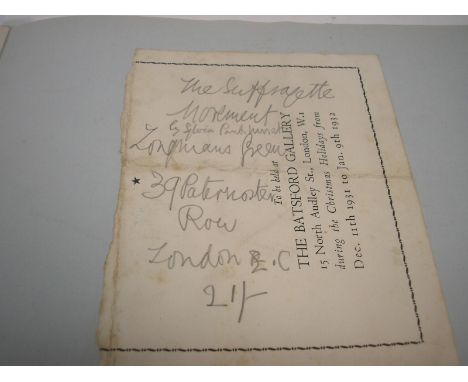 The Suffragette
Movement
by Sylvia Pankhurst
Longmans Green
39 Paternoster
Row
London E.C
21/-
To be held at
THE BATSFORD GALLERY
15 North Audley St., London, W.1
during the Christmas Holidays from
Dec. 11th 1931 to Jan. 9th 1932